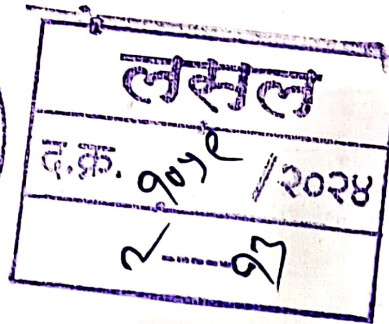 लसल
द.क्र. १०५९ /२०२४